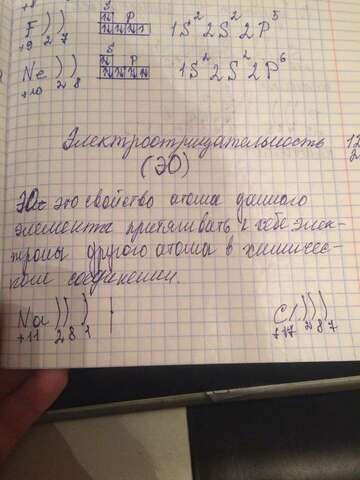 +8
S
F ) )
+9 2 7
P
1S² 2S² 2P⁵
S
Ne ) )
+10 2 8
P
1S² 2S² 2P⁶
Электроотрицательность
(ЭО)
ЭО - это свойство атома данного
элемента притягивать к себе элек-
троны другого атома в химичес-
ком соединении.
Na ) ) )
+11 2 8 1
Cl ) ) )
+17 2 8 7